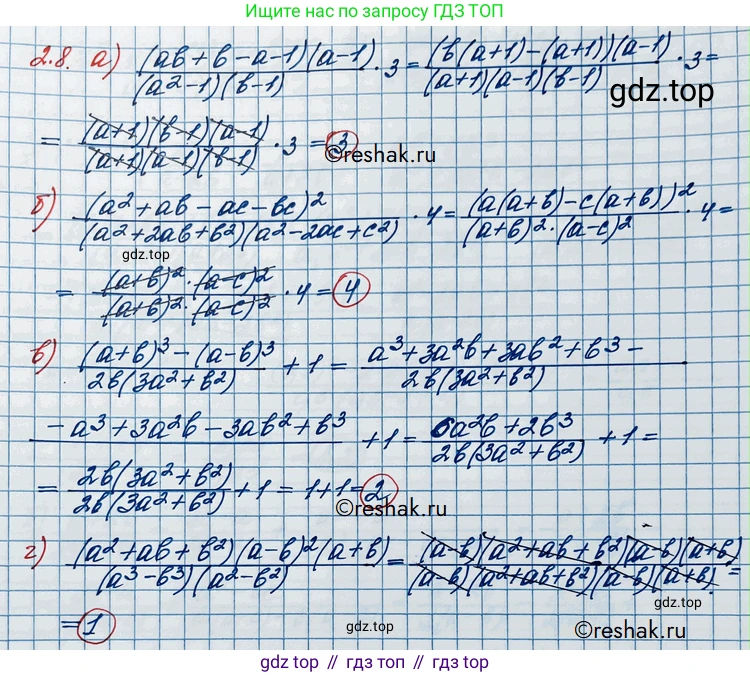 Ищите нас по запросу ГДЗ ТОП
2.8. а) (ab + b - a - 1)(a - 1) / (a² - 1)(b - 1) · 3 = (b(a+1) - (a+1))(a-1) / (a+1)(a-1)(b-1) · 3 =
gdz.top
= (a+1)(b-1)(a-1) / (a+1)(a-1)(b-1) · 3 = 3
©reshak.ru
б) (a² + ab - ac - bc)² / (a² + 2ab + b²)(a² - 2ac + c²) · 4 = (a(a+b) - c(a+b))² / (a+b)² · (a-c)² · 4 =
gdz.top
= (a+b)² · (a-c)² / (a+b)² · (a-c)² · 4 = 4
в) (a+b)³ - (a-b)³ / 2b(3a² + b²) + 1 = a³ + 3a²b + 3ab² + b³ - / 2b(3a² + b²)
- a³ + 3a²b - 3ab² + b³ + 1 = 6a²b + 2b³ / 2b(3a² + b²) + 1 =
= 2b(3a² + b²) / 2b(3a² + b²) + 1 = 1 + 1 = 2
©reshak.ru
г) (a² + ab + b²)(a - b)²(a + b) / (a³ - b³)(a² - b²) = (a-b)(a² + ab + b²)(a-b)(a+b) / (a-b)(a² + ab + b²)(a-b)(a+b) =
gdz.top
= 1
gdz.top
©reshak.ru
gdz top // гдз топ // gdz top // гдз топ